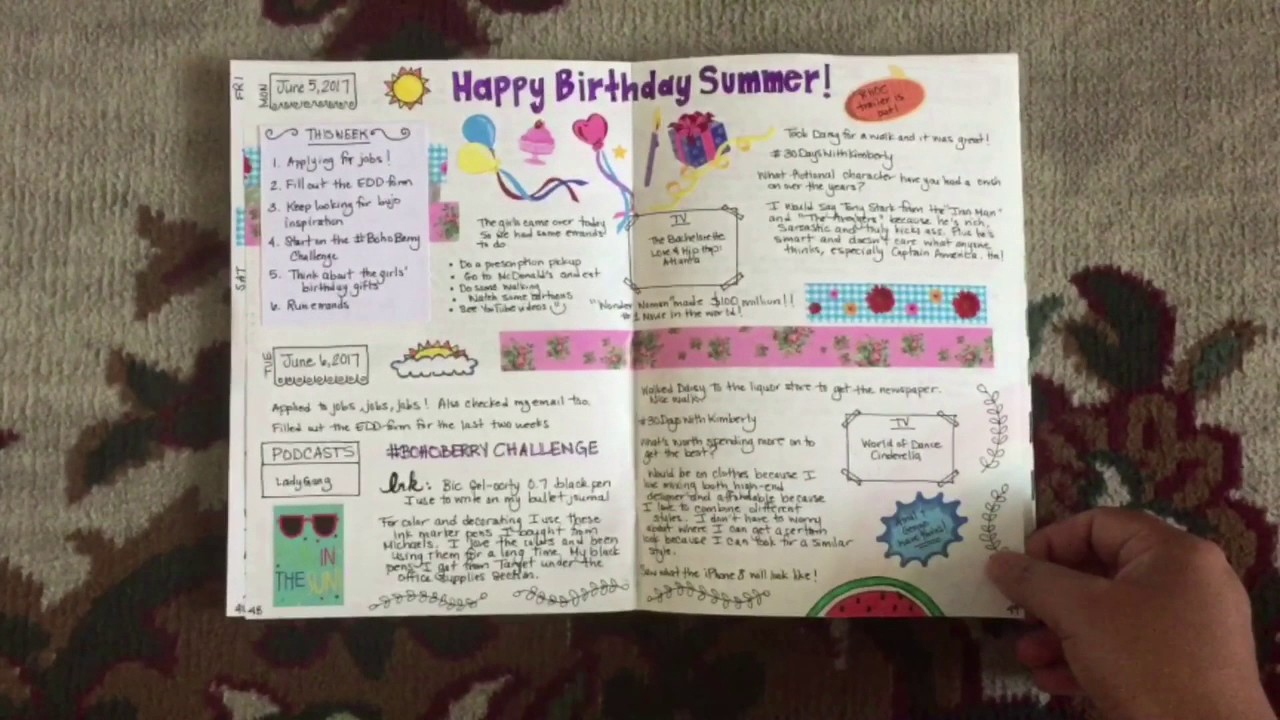 FRI
MON
June 5, 2017
Happy Birthday Summer!
RHOC
trailer is
out!
THIS WEEK
1. Applying for jobs!
2. Fill out the EDD form
3. Keep looking for bujo
inspiration
4. Start on the #BohoBerry
Challenge
5. Think about the girls'
birthday gifts
6. Run errands
SAT
The girls came over today
so we had some errands
to do.
• Do a prescription pickup
• Go to McDonald's and eat
• Do some walking
• Watch some cartoons
• See YouTube videos
TV
The Bachelorette
Love & Hip Hop:
Atlanta
"Wonder Woman" made $100 million!!
#1 in the world!
Took Daisy for a walk and it was great!
#30DaysWithKimberly
What fictional character have you had a crush
on over the years?
I would say Tony Stark from the "Iron Man"
and "The Avengers" because he's rich,
sarcastic and truly kicks ass. Plus he's
smart and doesn't care what anyone
thinks, especially Captain America. Ha!
TUE
June 6, 2017
Applied to jobs, jobs, jobs! Also checked my email too.
Filled out the EDD form for the last two weeks
PODCASTS
LadyGang
#BOHOBERRY CHALLENGE
Ink: Bic Gel-ocity 0.7 black pen
I use to write on my bullet journal
For color and decorating I use these
ink marker pens I bought from
Michaels. I love the colors and been
using them for a long time. My black
pens I got from Target under the
office supplies section.
IN
THE SUN
48
Walked Daisy to the liquor store to get the newspaper.
Nice walk.
#30DaysWithKimberly
What's worth spending more on to
get the best?
Would be on clothes because I
love mixing both high-end
designer and affordable because
I love to combine different
styles. I don't have to worry
about where I can get a certain
look because I can look for a similar
style.
Saw what the iPhone 8 will look like!
TV
World of Dance
Cinderella
George
have twins!